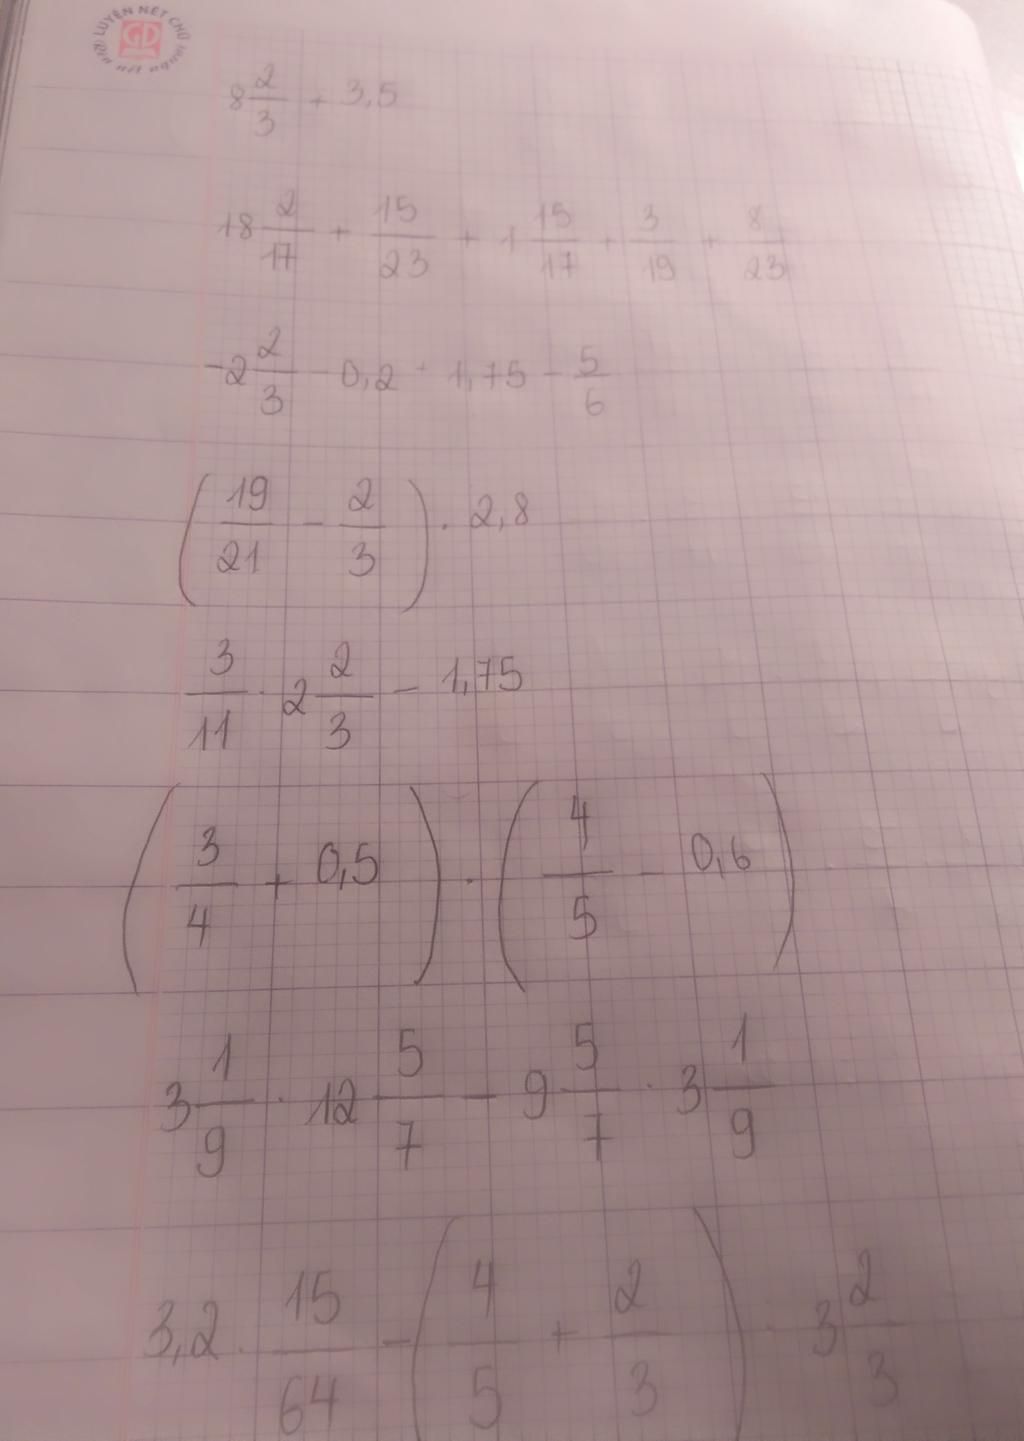 LUYỆN NÉT CHỮ
GD
nết người
8 2/3 + 3,5
18 2/17 + 15/23 + 1 15/17 + 3/19 + 8/23
-2 2/3 - 0,2 · 1,75 - 5/6
(19/21 - 2/3) · 2,8
3/11 · 2 2/3 - 1,75
(3/4 + 0,5) · (4/5 - 0,6)
3 1/9 · 12 5/7 - 9 5/7 · 3 1/9
3,2 · 15/64 - (4/5 + 2/3) · 3 2/3